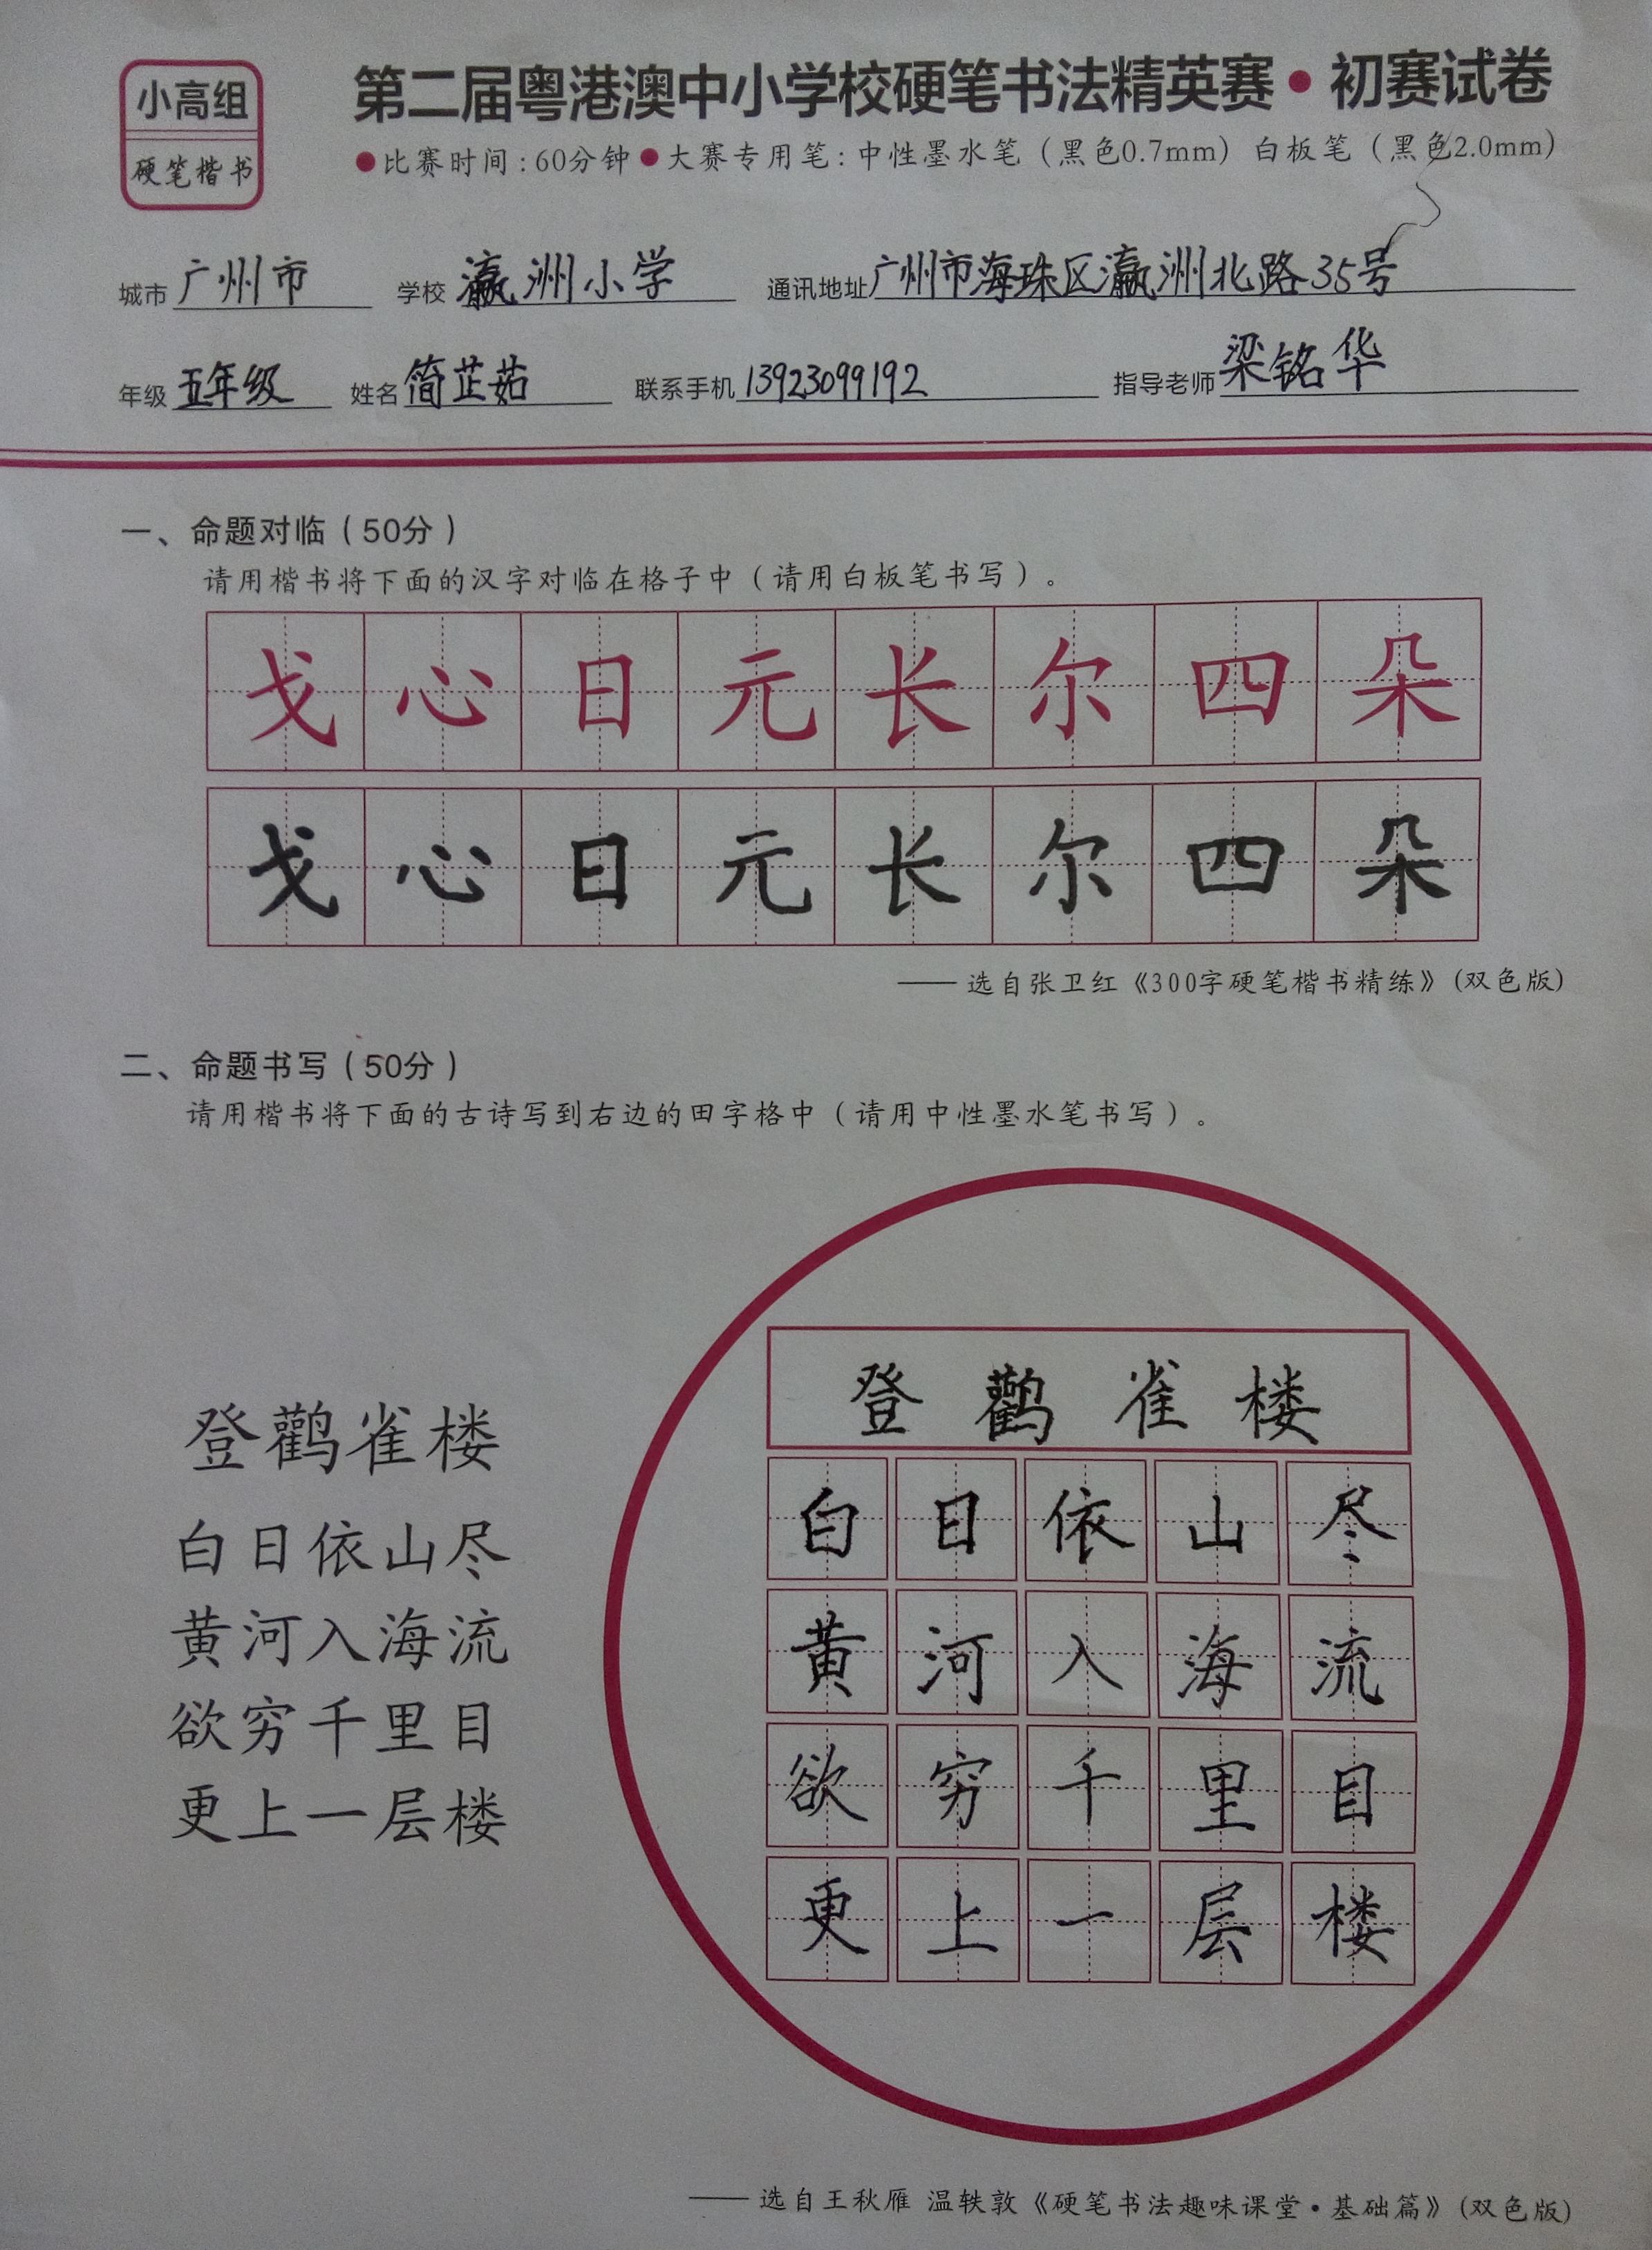 小高组
硬笔楷书
第二届粤港澳中小学校硬笔书法精英赛•初赛试卷
●比赛时间:60分钟●大赛专用笔:中性墨水笔（黑色0.7mm）白板笔（黑色2.0mm）
城市 广州市 学校 瀛洲小学 通讯地址 广州市海珠区瀛洲北路35号
年级 五年级 姓名 简芷茹 联系手机 13923099192 指导老师 梁铭华
一、命题对临（50分）
请用楷书将下面的汉字对临在格子中（请用白板笔书写）。
戈心日元长尔四朵
戈心日元长尔四朵
——选自张卫红《300字硬笔楷书精练》(双色版)
二、命题书写（50分）
请用楷书将下面的古诗写到右边的田字格中（请用中性墨水笔书写）。
登鹳雀楼
白日依山尽
黄河入海流
欲穷千里目
更上一层楼
登鹳雀楼
白日依山尽
黄河入海流
欲穷千里目
更上一层楼
——选自王秋雁 温轶敦《硬笔书法趣味课堂•基础篇》(双色版)